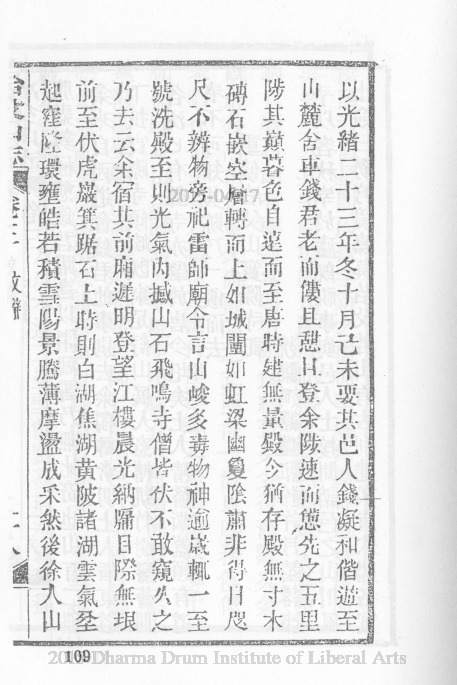 以光緒二十三年冬十月己未要其邑人錢凝和偕遊至
山麓舍車錢君老而僂且憩且登余陟速而憊先之五里
陟其巔暮色自遠而至唐時建無量殿今猶存殿無寸木
磚石嵌空層轉而上如城闉如虹梁幽敻陰肅非得日咫
尺不辨物旁祀雷師廟令言山峻多毒物神逾歲輒一至
號洗殿至則光氣內撼山石飛鳴寺僧皆伏不敢窺久之
乃去云余宿其前廂遲明登望江樓晨光納牖目際無垠
前至伏虎巖箕踞石上時則白湖焦湖黃陂諸湖雲氣坌
起窪隆環雍皓若積雪陽景騰薄摩盪成采然後徐入山
山志
卷三
文辭
十八
109
2017-04-17
Dharma Drum Institute of Liberal Arts